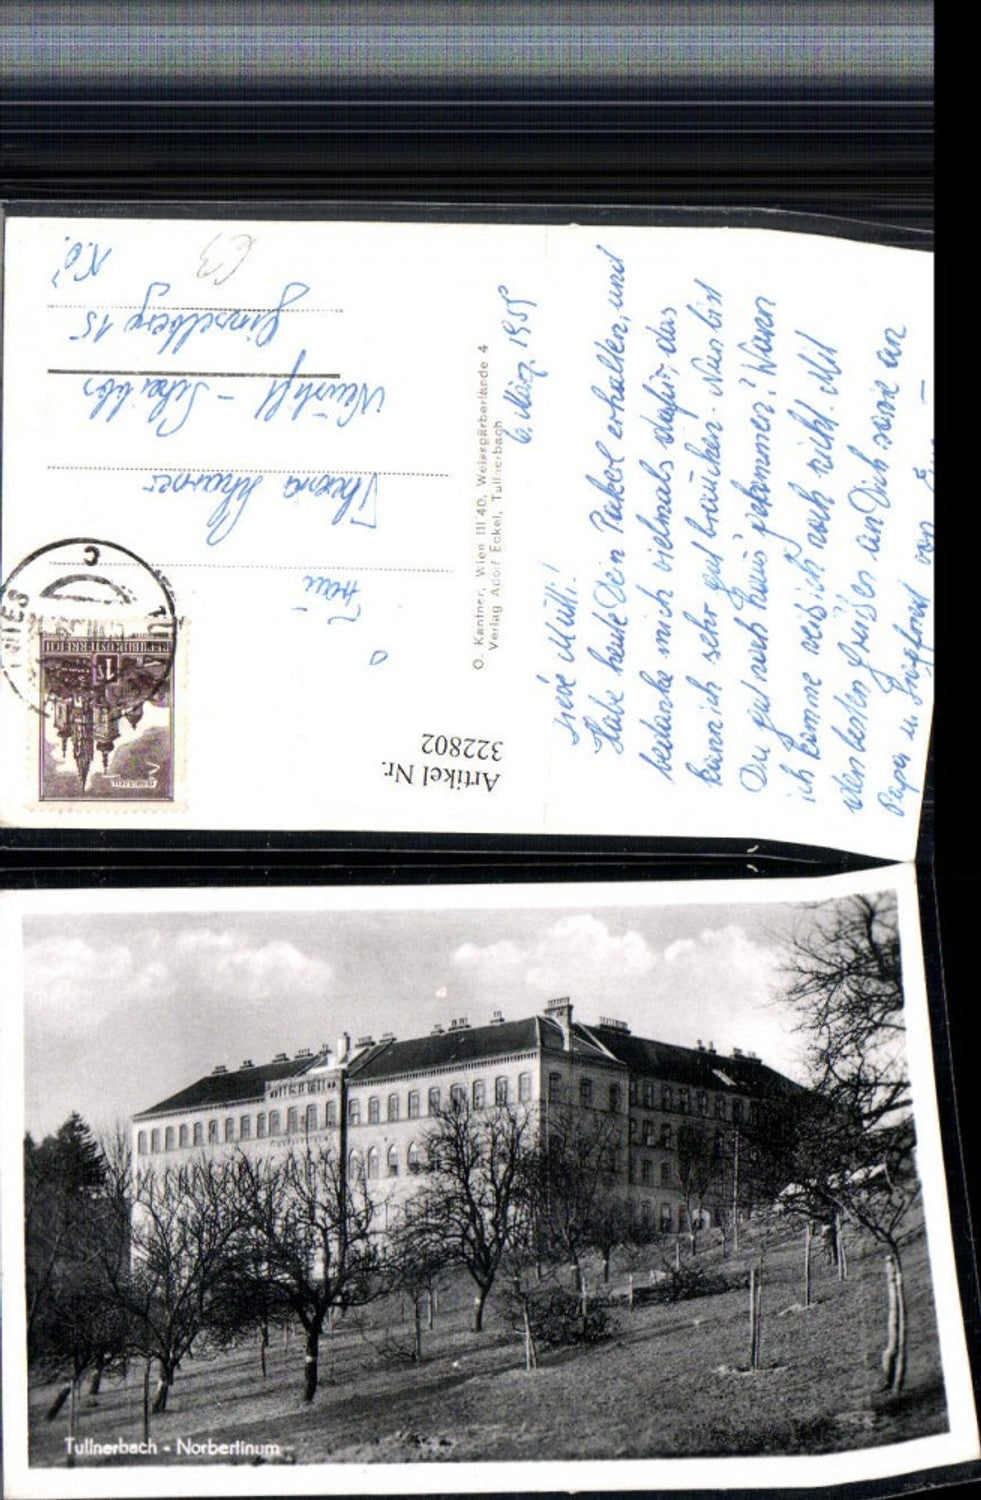 6. März 1955
Liebe Mutti!
Habe heute Dein Paket erhalten, und
bedanke mich vielmals dafür, das
kann ich sehr gut brauchen. Nun bist
Du gut nach Haus' gekommen? Wann
ich komme weis ich noch nicht. Mit
den besten Grüßen an Dich sowie an
Papa u. von
O. Kantner, Wien III/40, Weissgärberlände 4
Verlag Adolf Eckel, Tullnerbach
Artikel Nr.
322802
Frau
Scharner
Neustift - Scheibbs
Ginselberg 15
N.Ö.
63
REPUBLIK ÖSTERREICH
1 S
Tullnerbach - Norbertinum